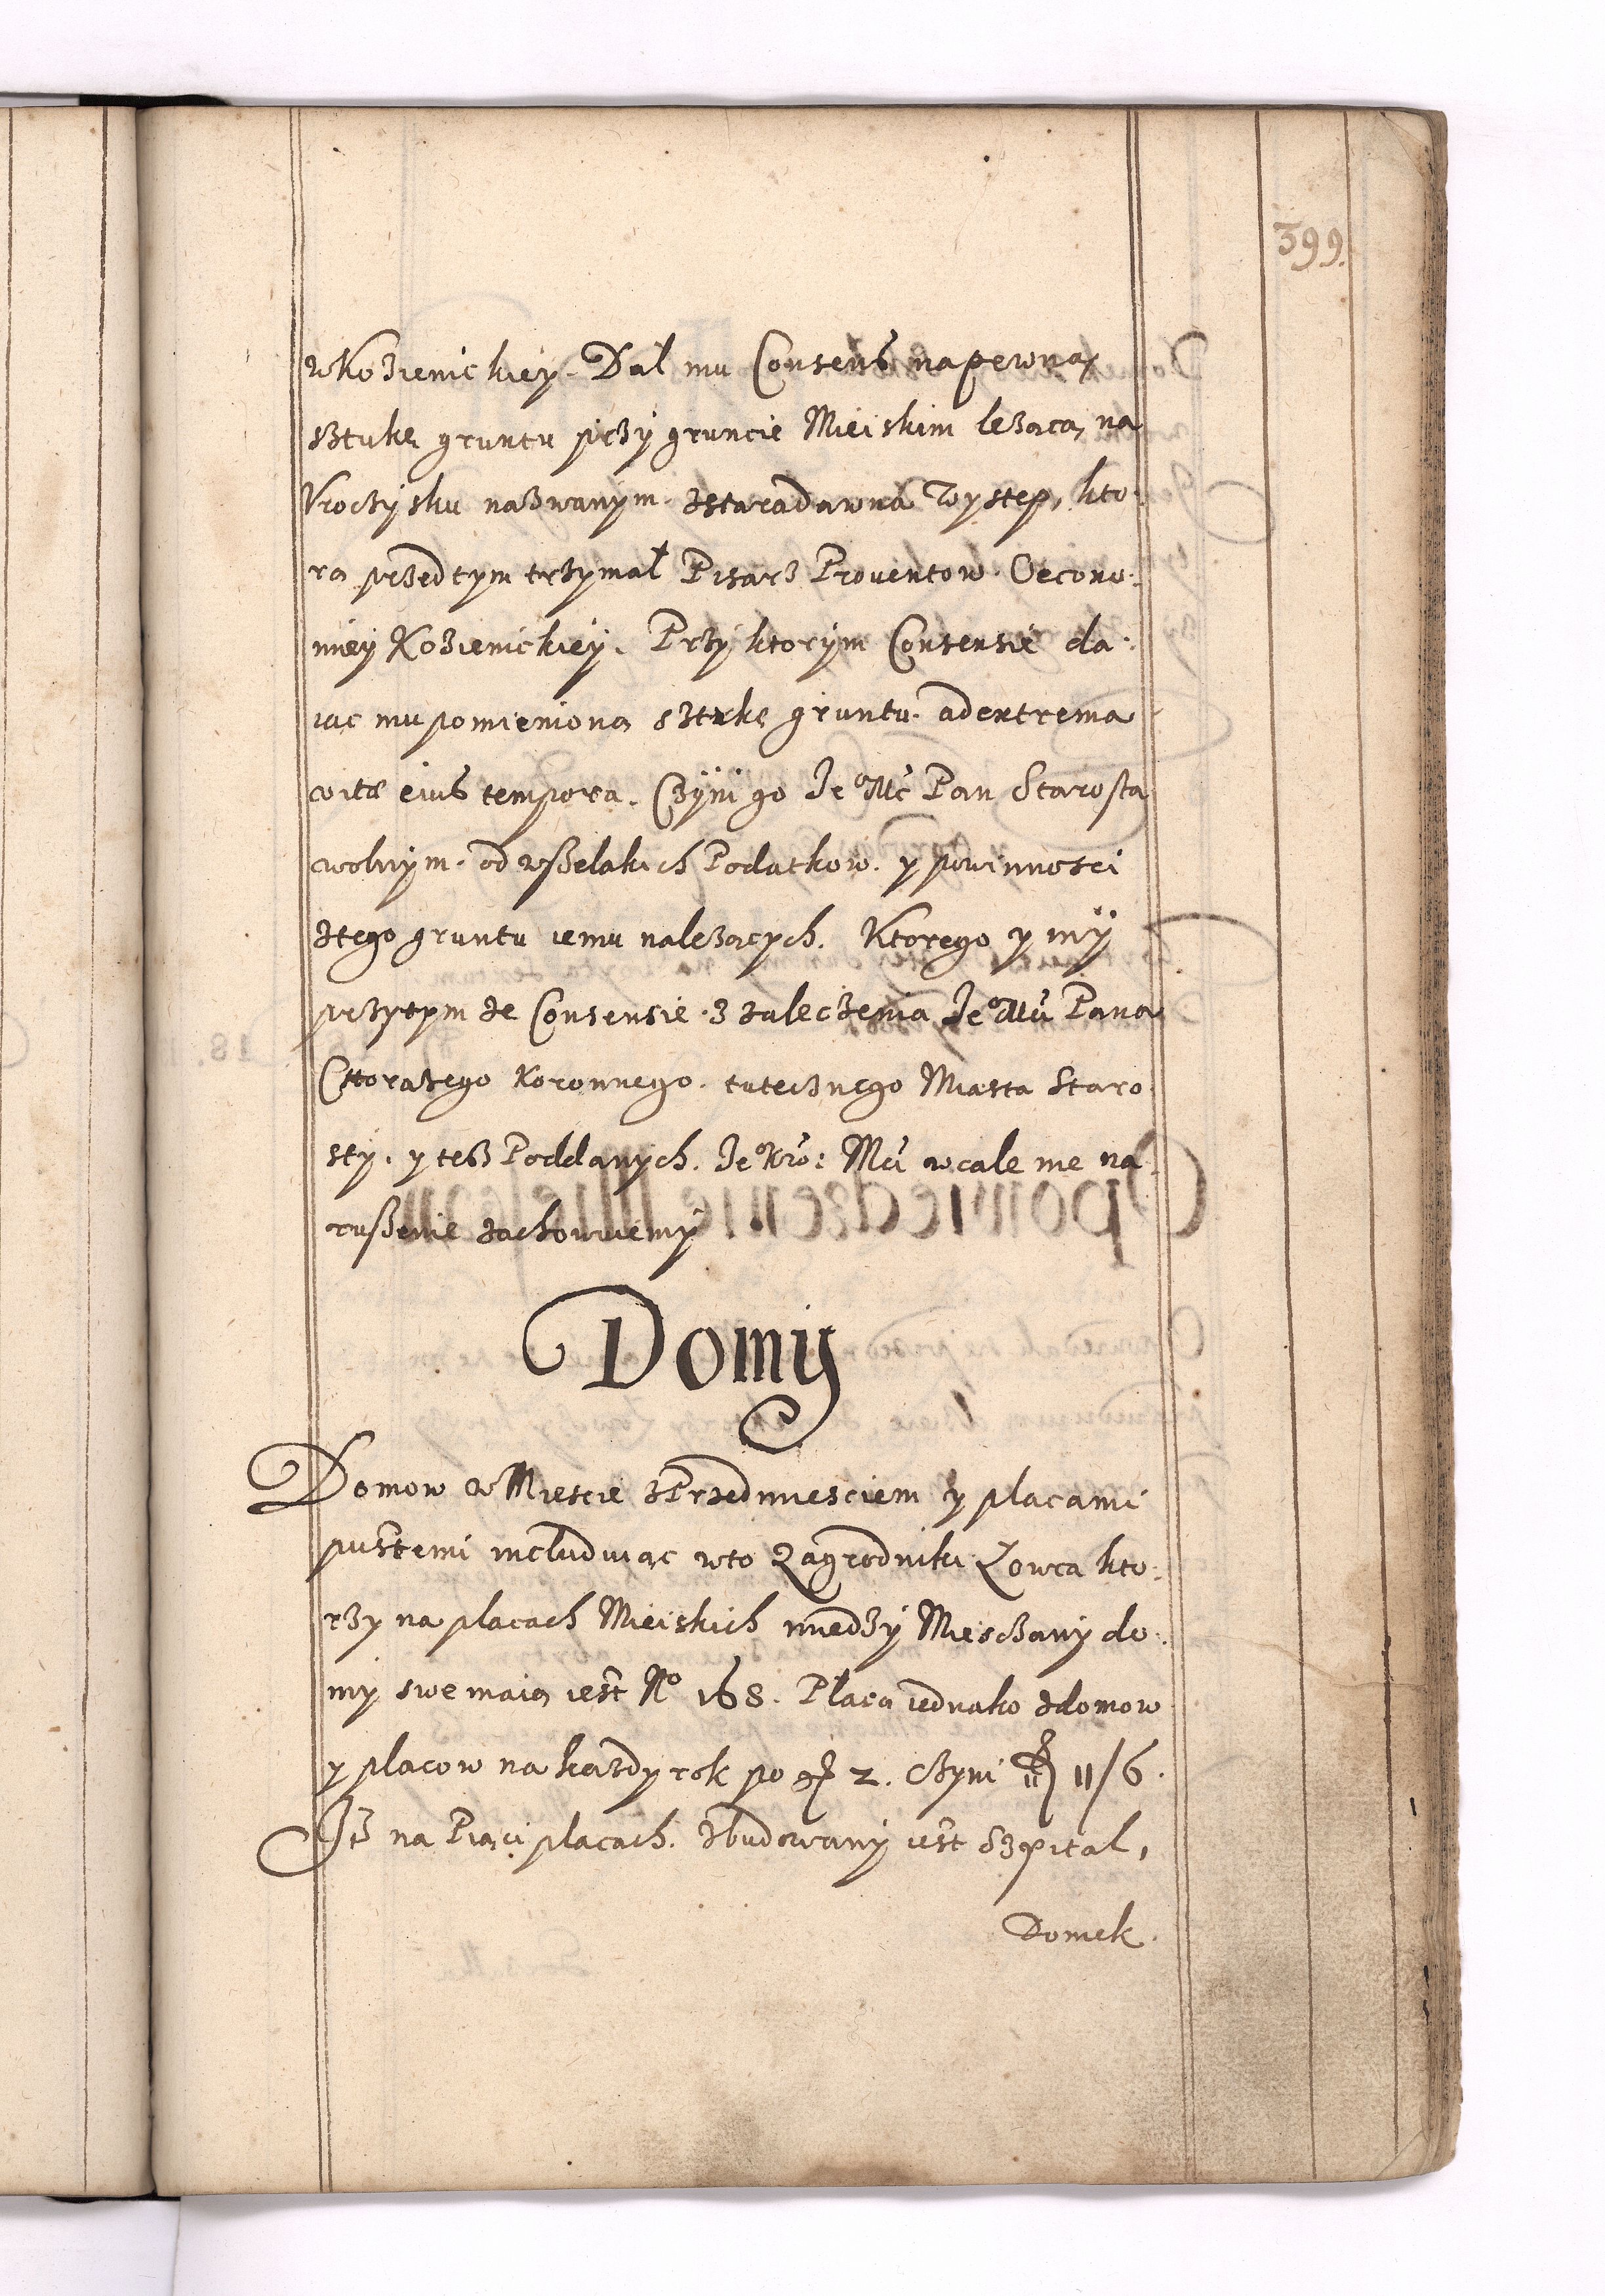 399.
w Kozienickiey. Dał mu Consens na pewną
sztukę gruntu przy gruncie Mieiskim lezącą na
Vroczysku nazwanym zstaradawna Występ, kto:
rą przedtym trzymał Pisarz Prouentow Oecono:
miey Kozienickiey. Przy ktorym Consensie da:
iąc mu pomienioną sztukę gruntu ad extrema
vitæ eius tempora. Czyni go Je͠o Mć Pan Starosta
wolnym od wszelakich Podatkow y powinnosci
ztego gruntu iemu nalezących. Ktorego y my
przytym ze Consensie z zaleczenia Je͠o Mći Pana
Chorązego Koronnego tutecznego Miasta Staro:
sty, y tesz Poddanych Je͠o Kró: Mći wcale nie na:
ruszenie zachowuiemy
Domy
Domow w Miescie z Przedmiesciem y placami
pustemi includuiąc wto Zagrodniki Łowca kto:
rzy na placach Mieiskich miedzy Miesczany do:
my swe maią iest No 168. Płacą iednako zdomow
y placow na kazdy rok po gr 2. Czyni fl 11/6.
Itē na Piąci placach zbudowany iest Szpital,
Domek.